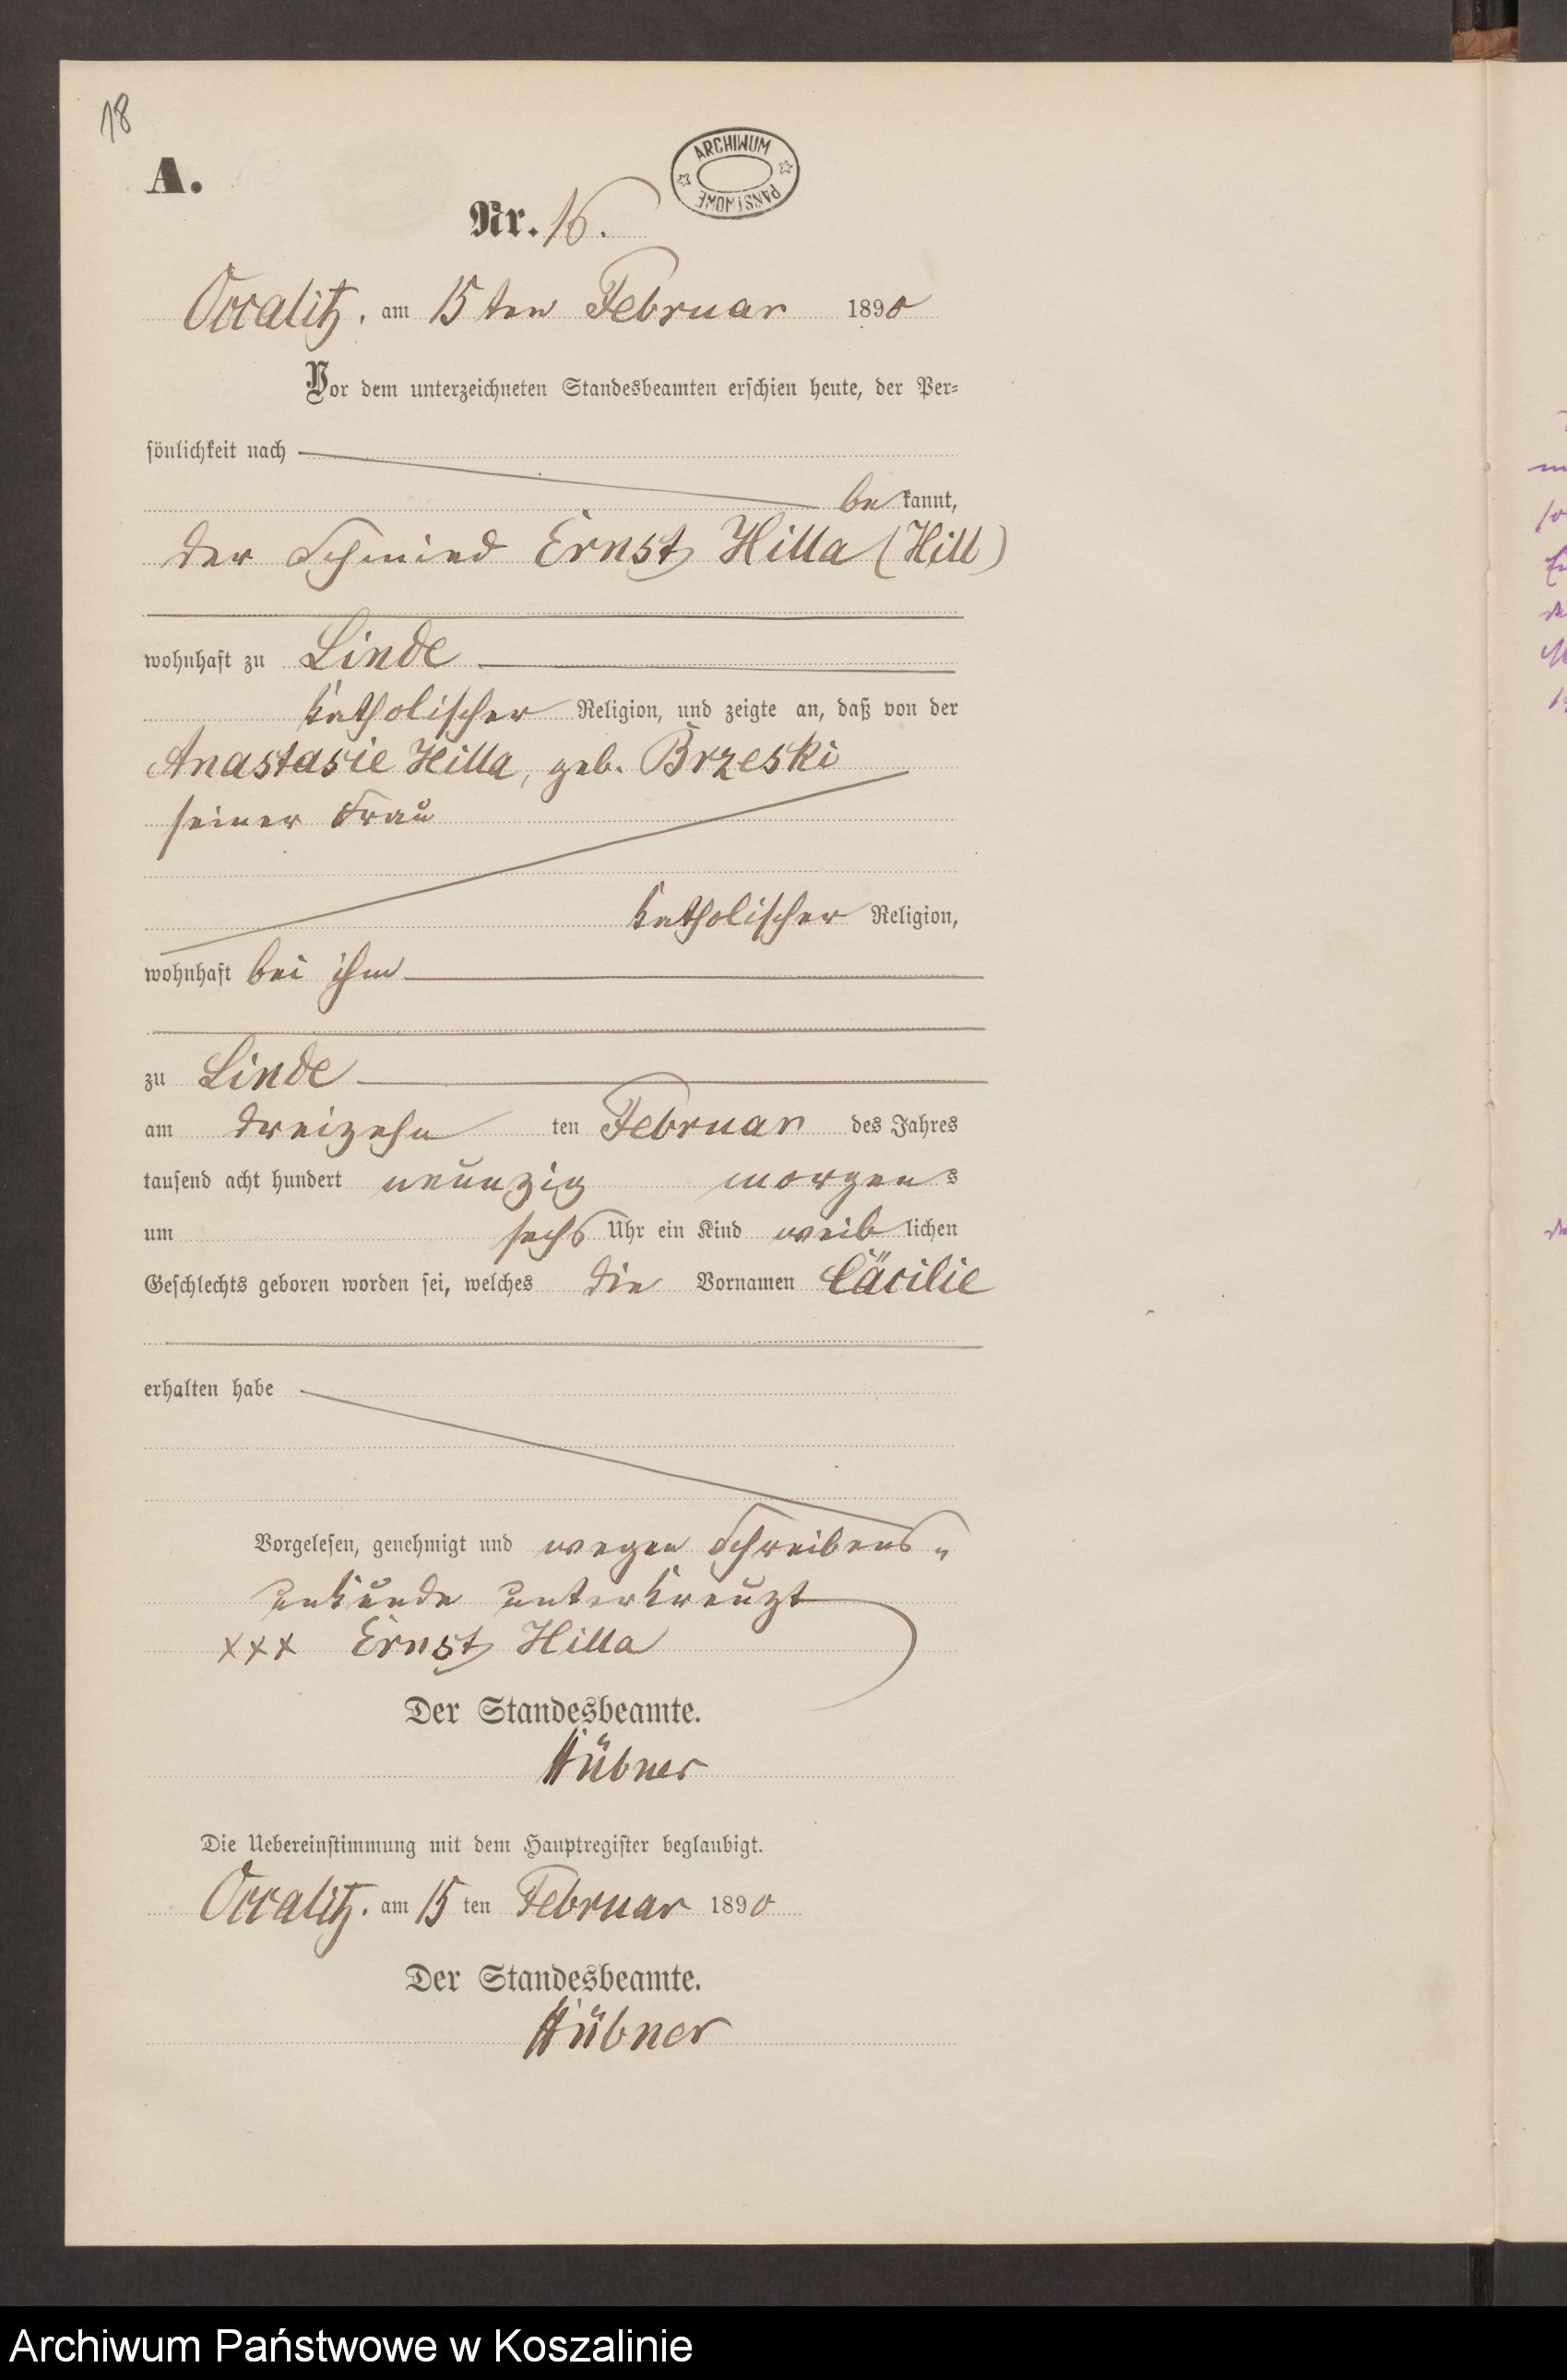 18
A.
ARCHIWUM
PAŃSTWOWE
Nr. 16.
Occalitz. am 15 ten Februar 1890
Vor dem unterzeichneten Standesbeamten erschien heute, der Per-
sönlichkeit nach
be kannt,
der Schmied Ernst Hilla (Hill)
wohnhaft zu Linde
katholischer Religion, und zeigte an, daß von der
Anastasie Hilla, geb. Brzeski
seiner Frau
katholischer Religion,
wohnhaft bei ihm
zu Linde
am dreizehn ten Februar des Jahres
tausend acht hundert neunzig morgen s
um sechs Uhr ein Kind weib lichen
Geschlechts geboren worden sei, welches die Vornamen Cäcilie
erhalten habe
Vorgelesen, genehmigt und wegen Schreibens-
unkunde unterkreuzt
xxx Ernst Hilla
Der Standesbeamte.
Hübner
Die Uebereinstimmung mit dem Hauptregister beglaubigt.
Occalitz. am 15 ten Februar 1890
Der Standesbeamte.
Hübner
Archiwum Państwowe w Koszalinie